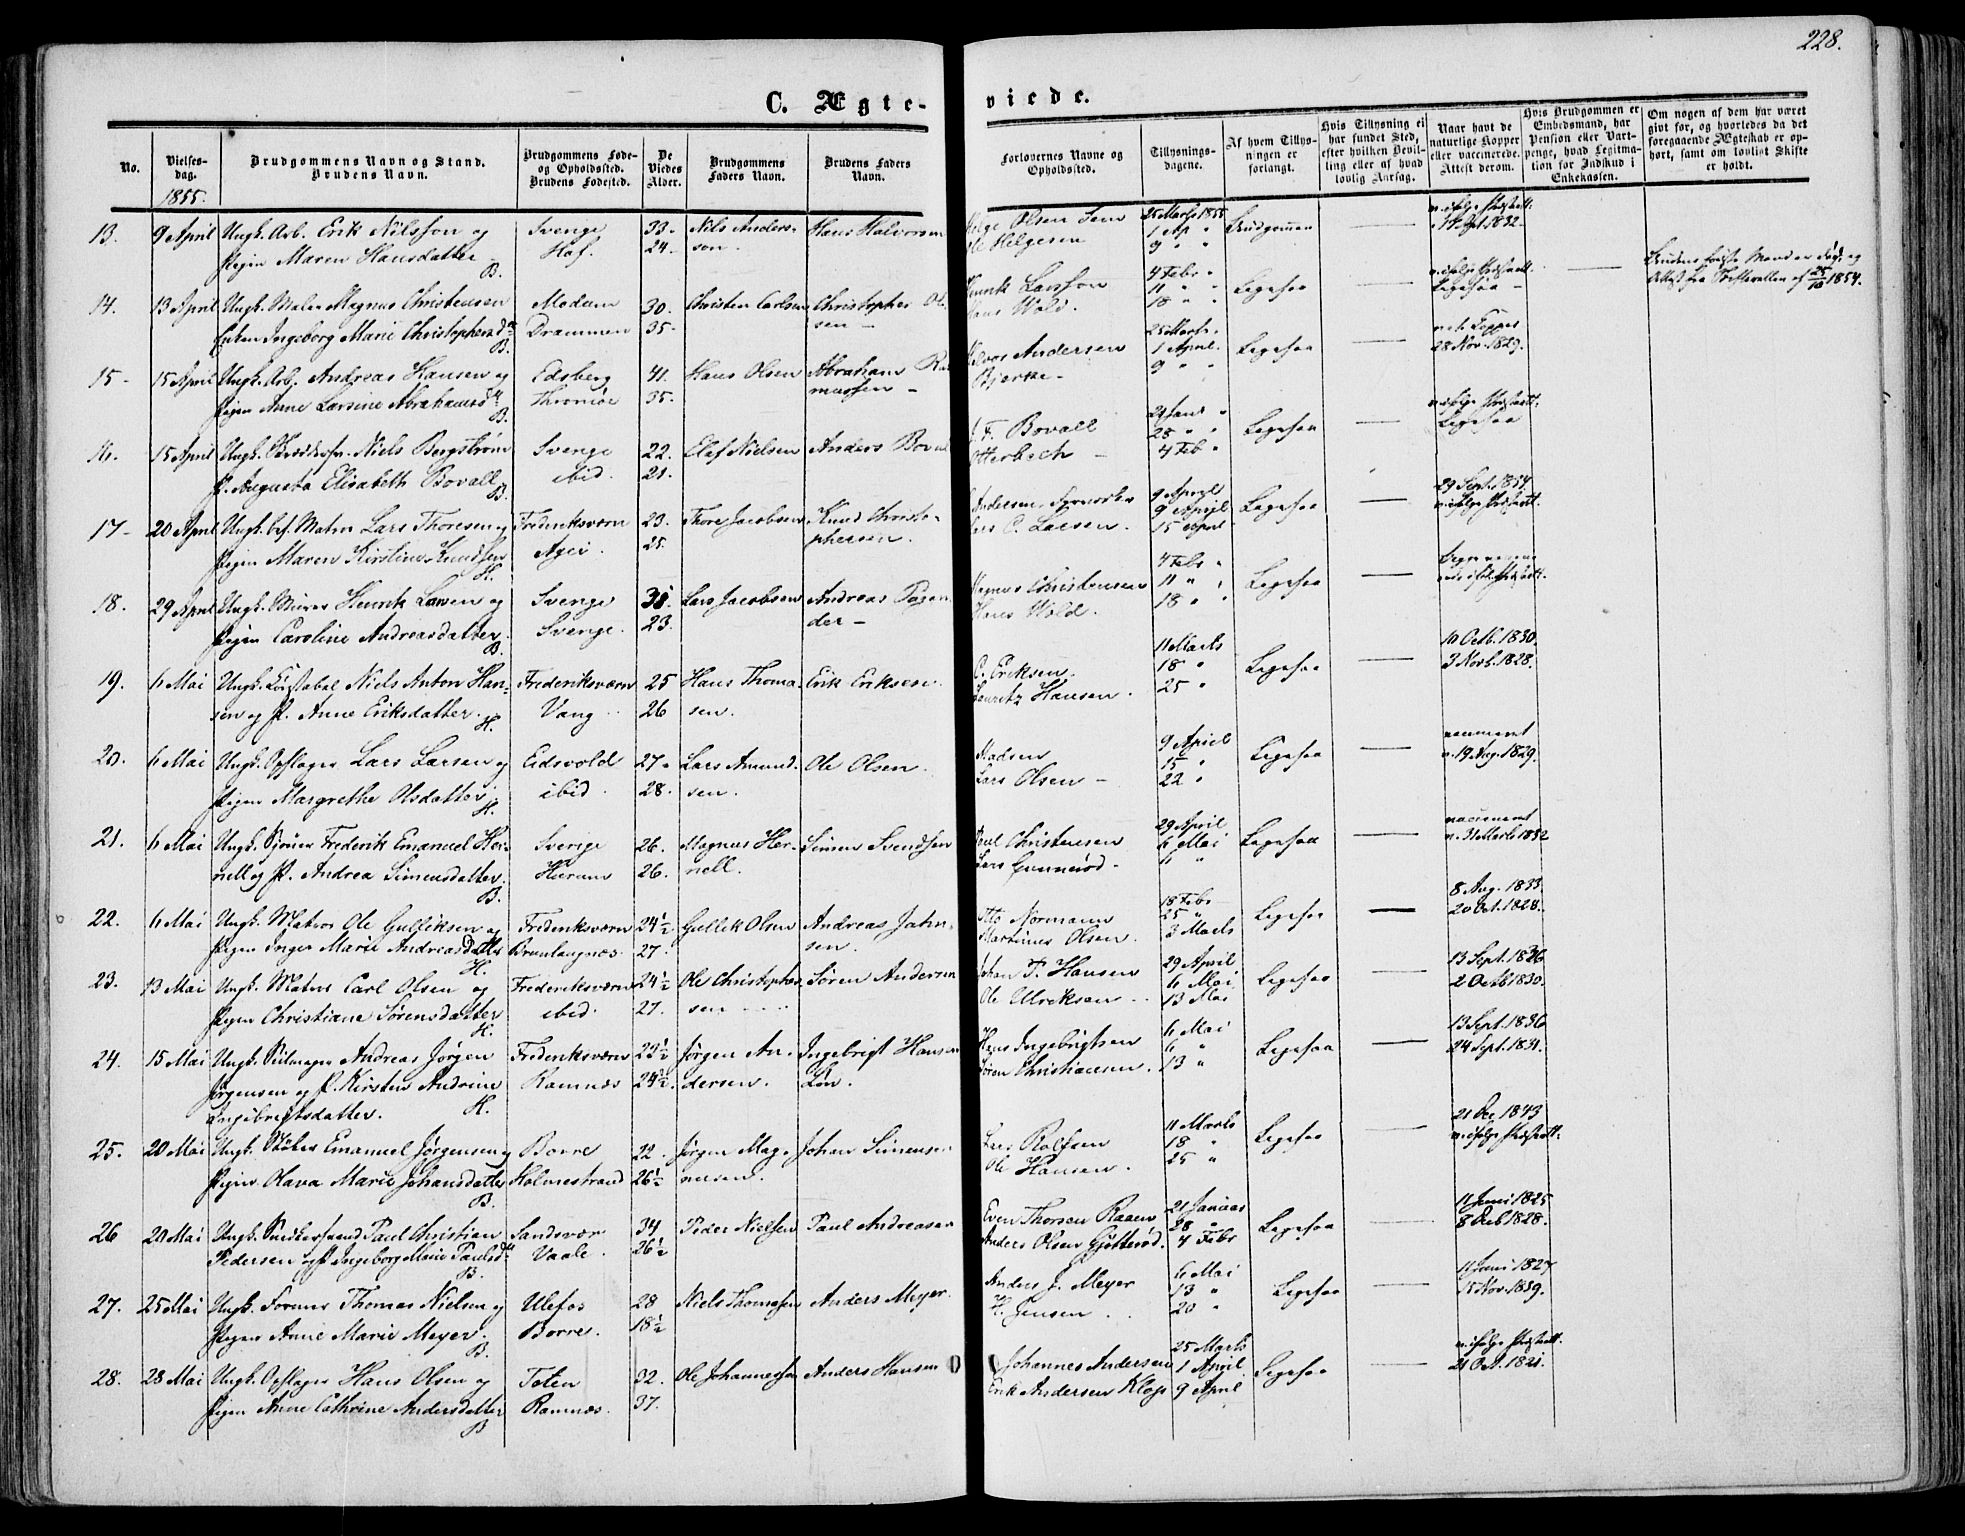 228.
C. Ægte-
viede.
No.
Vielses-
dag.
Brudgommens Navn og Stand.
Brudens Navn.
Brudgommens Føde-
og Opholdssted.
Brudens Fødested.
De
Viedes
Alder.
Brudgommens
Faders Navn.
Brudens Faders
Navn.
Forlovernes Navne og
Opholdssted.
Tillysnings-
dagene.
Af hvem Tillys-
ningen er
forlangt.
Hvis Tillysning ei
har fundet Sted,
efter hvilken Bevil-
ling eller af hvad
lovlig Aarsag.
Naar havt de
naturlige Kopper
eller vaccinerede.
Attest derom.
Hvis Brudgommen er
Embedsmand, har
Pension eller Vart-
penge, hvad Legitima-
tion for Indskud i
Enkekassen.
Om nogen af dem har været
gift før, og hvorledes da det
foregaaende Ægteskab er op-
hørt, samt om lovligt Skifte
er holdt.
1855.
13. 9 April Ungk. Arb. Erik Nilsson og Sverige 33. Nils Anders- Hans Halvorsen
Pigen Maren Hansdatter Hof. 24 sen.
B.
Helge Olsen Sem 25 Marts 1855 Brudgommen
Helgesen 1 Ap "
9 " "
14. 13 April Ungk. Maler Magnus Christensen Modum 30. Christen Carlsen Christopher Ol
Enken Ingeborg Marie Christophersd Drammen 35. sen
B.
Henrik Larsson 4 Febr " Ligesaa
Hans Wold. 11 " "
18 " "
Ligesaa
Brudens første Mand er død og
Attest fra Skifteretten af 25/10 1854.
15 15 April Ungk. Arb. Andreas Hansen og Edsberg 41. Hans Olsen Abraham Ras
Pigen Anne Larsine Abrahamsd Thromøe 35. mussen
B.
Andersen 25 Marts. Ligesaa
Bjerke 1 April.
9 " "
28 Nov. 1829.
16. 15 April Ungk. Niels Bergstrøm Sverige 22. Olof Nielsen Anders Boval
P. Augusta Elisabeth Bovall ibid. 21.
B.
F. Bovall 21 Janr " Ligesaa
Otterbech 28 " "
4 Feb "
Ligesaa
17 20 April Ungk. bef. Matr. Lars Thoresen og Frederiksværn 23. Thore Jacobsen Knud Christo-
Pigen Maren Kirstine Knudsen Ager. 25. phersen.
H.
Andersen 9 April Ligesaa
Lars C. Larsen. 9 April
15 April
29 Sept. 1854.
18. 29 April Ungk. Murer Henrik Larsen og Sverige Lars Jacobsen Andreas
Pigen Caroline Andreasdatter. Sverige. 23. der
B.
Magnus Christensen 4 Febr " Ligesaa
Hans Wold. 11 " "
18 " "
19. 6 Mai Ungk. Konstabel Niels Anton Han- Frederiksværn 25 Hans Thoma- Erik Eriksen.
sen og P. Anne Eriksdatter. Vang 26 sen.
H.
C. Eriksen. 11 Marts Ligesaa
Lauritz Hansen. 18 "
25 "
10 Octb. 1830.
3 Novb. 1828.
20. 6 Mai Ungk. Opsg. Lars Larsen og Eidsvold 27. Lars Amund- Ole Olsen.
Pigen Margrethe Olsdatter ibid. 28. sen.
H.
Madsen 9 April Ligesaa
Lars Olsen 15 "
22 "
19 Aug. 1829.
21. 6 Mai Ungk. Frederik Emanuel Her- Sverige 26. Magnus Her- Simen Svendsen
nell og P. Andrea Simensdatter. Hurum 26. nell.
B.
Poul Christensen 29 April Ligesaa
Lars Gunnerød. 6 Mai
6 "
31 Marts 1832
22. 6 Mai Ungk. Matros Ole Gulliksen og Frederiksværn 24½ Gullik Olsen Andreas Jahn-
Pigen Inger Marie Andreasdatter Brunlangnæs 27. sen.
H.
Otto Normann 18 Febr Ligesaa
Martinus Olsen. 25 "
3 Marts
8 Aug. 1833.
20 Oct. 1828.
23. 13 Mai Ungk. Matros Carl Olsen og Frederiksværn 24½ Ole Christopher- Søren Andersen
Pigen Christiane Sørensdatter ibid. 27. sen
H.
Johan T. Hansen 29 April Ligesaa
Ole Ulriksen 6 Mai
13 Mai
13 Sept. 1836
2 Octb 1830.
24. 15 Mai Ungk. Seilmager Andreas Jørgen Frederiksværn 23½ Jørgen An- Ingebrigt Hansen
Jørgensen og P. Kirsten Andrine Ramnæs 24½. dersen. Løn.
Ingebrigtsdatter. H.
Hans Ingebrigtsen 6 Mai Ligesaa
Søren Christiansen. 6 "
13 "
13 Sept. 1836
24 Sept. 1831.
25. 20 Mai Ungk. Støber Emanuel Jørgensen og Borre 22. Jørgen Mag- Johan Simensen
Pigen Olava Marie Johansdatter Holmestrand 26½ nusen.
B.
Lars Rolfsen 11 Marts Ligesaa
Ole Hansen. 18 "
25 "
21 Dec 1843
26 20 Mai Ungk. Paul Christian Sandsvær 34 Peder Nielsen Paul Andreasen
Pedersen og P. Ingeborg Marie Paulsd Vaale. 26½
B.
Even Thorsen Raaen 21 Januar Ligesaa
Anders Olsen Gjøtterød. 28 "
4 Febr
11 Juni 1825
8 Octb 1828.
27. 25 Mai Ungk. Former Thomas Nielsen og Ulefos 28 Niels Thomesen Anders Meyer.
Pigen Anne Marie Meyer. Borre. 18½
B.
Anders J. Meyer 6 Mai Ligesaa
H. Jensen. 13 "
20 "
11 Juni 1827
15 Nov. 1839.
28. 28 Mai Ungk. Opslager Hans Olsen og Toten 32. Ole Johannessen Anders Hansen
Pigen Anne Cathrine Andersdatter Ramnæs. 37.
B
Johannes Andersen 25 Marts Ligesaa
Erik Andersen Klop 1 April
9 April
21 Oct. 1821.